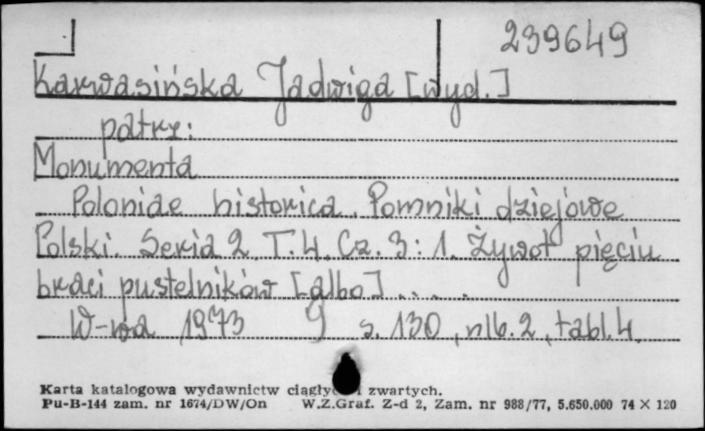 239649
Karwasińska Jadwiga [wyd.]
patrz:
Monumenta
Poloniae historica. Pomniki dziejowe
Polski. Seria 2. T. 4. Cz. 3: 1. Żywot pięciu
braci pustelników [albo] ....
W-wa 1973 s. 130, nlb. 2, tabl. 4.
Karta katalogowa wydawnictw ciągłych i zwartych.
Pu-B-144 zam. nr 1674/DW/On W.Z.Graf. Z-d 2, Zam. nr 988/77, 5.650.000 74 × 120